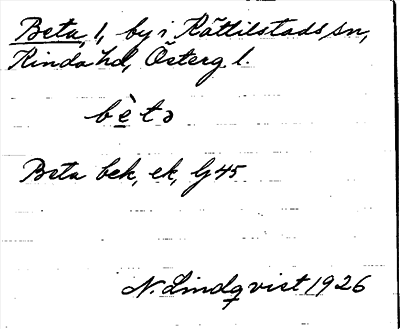 Beta, 1, by i Rättilstads sn,
Kinda hd, Österg l.
bè̱tə
Beta bek, ek, G 45
N. Lindqvist 1926